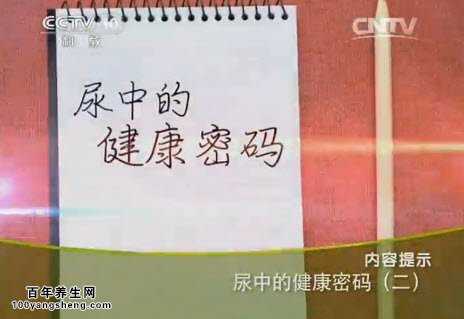 CCTV-10
科教
CNTV
尿中的
健康密码
内容提示
尿中的健康密码(二)
百年养生网
100yangsheng.com